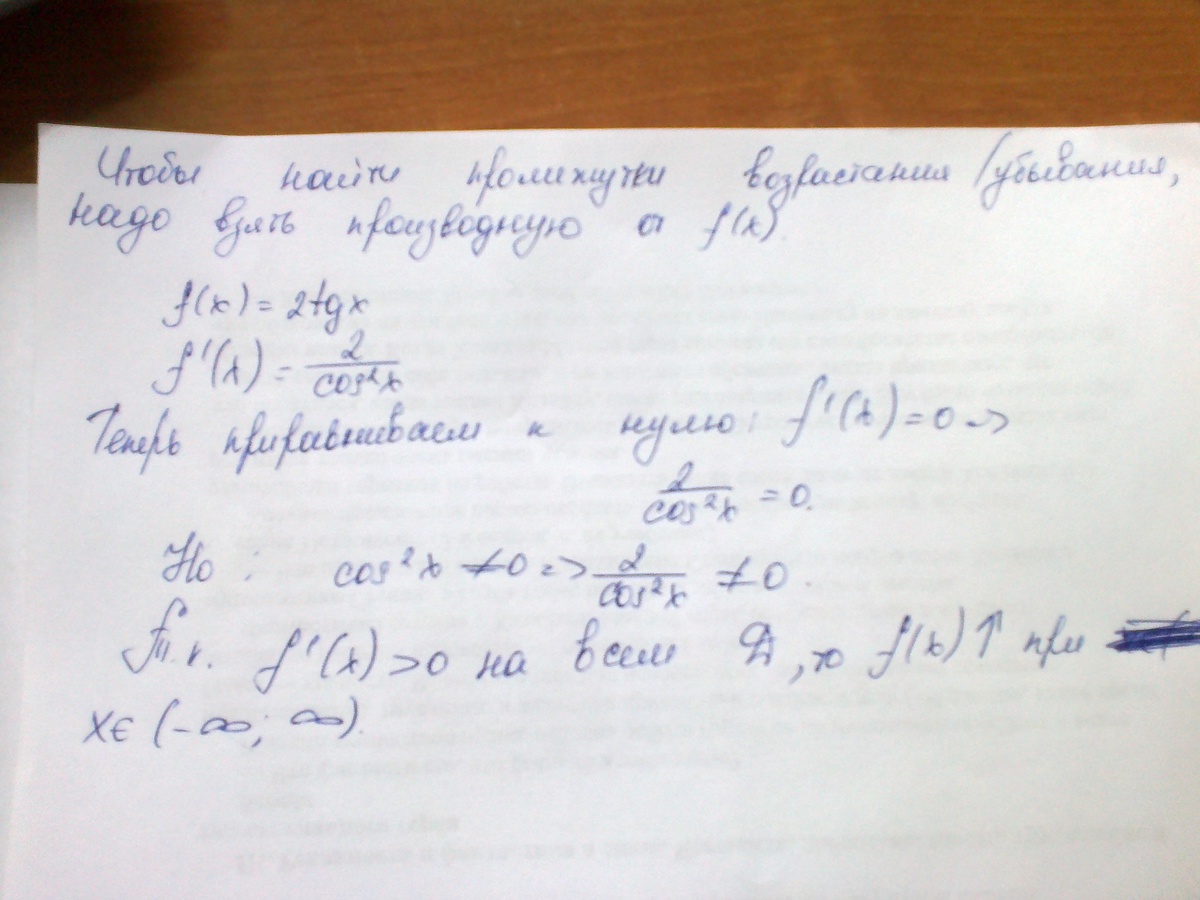 Чтобы найти промежутки возрастания/убывания,
надо взять производную от f(x).
f(x) = 2tgx
f'(x) = 2/cos²x
Теперь приравниваем к нулю: f'(x) = 0 =>
2/cos²x = 0.
Но: cos²x ≠ 0 => 2/cos²x ≠ 0.
Т.к. f'(x) > 0 на всем D, то f(x)↑ при
x∈ (-∞; ∞).